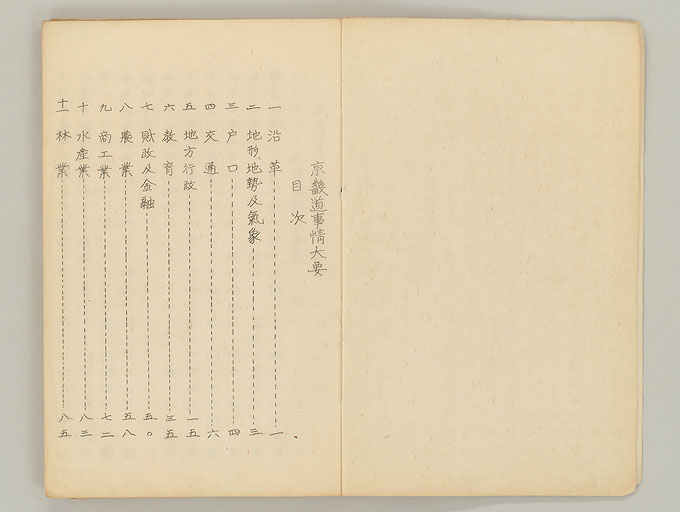 京畿道事情大要
目次
一 沿革 一
二 地形、地勢及氣象 三
三 戸口 四
四 交通 六
五 地方行政 一五
六 教育 三五
七 財政及金融 五〇
八 農業 五八
九 商工業 七二
十 水産業 八三
十一 林業 八五